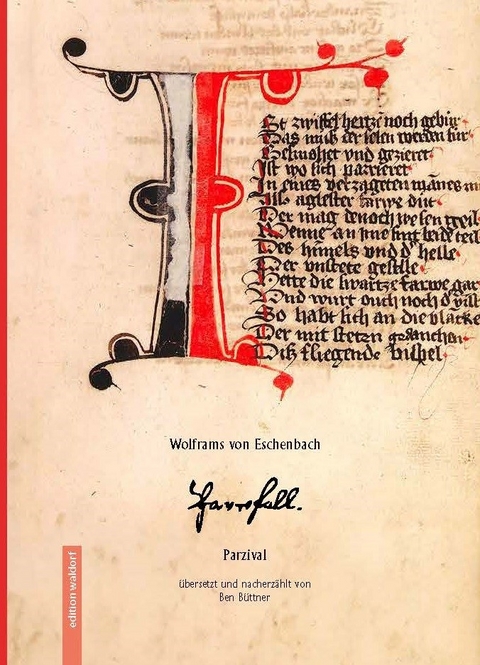 I
St zwiffel hertze noch gebur
Das muß der selen werden sur
Gesmohet vnd gezieret
Ist wo sich parrieret
In eines verzageten mānes mu
Also aglester farwe dut
Der mag denoch wesen geil
Wenne an ime sint beide teil
Des himels vnd d' helle
Der vnstete geselle
Hette die swartze farwe gar
Und wurt ouch noch d' vinst
So habt sich an die blancke
Der mit steten gedancken
Dis fliegende bispel
Wolframs von Eschenbach
Parcifall.
Parzival
übersetzt und nacherzählt von
Ben Büttner
edition waldorf